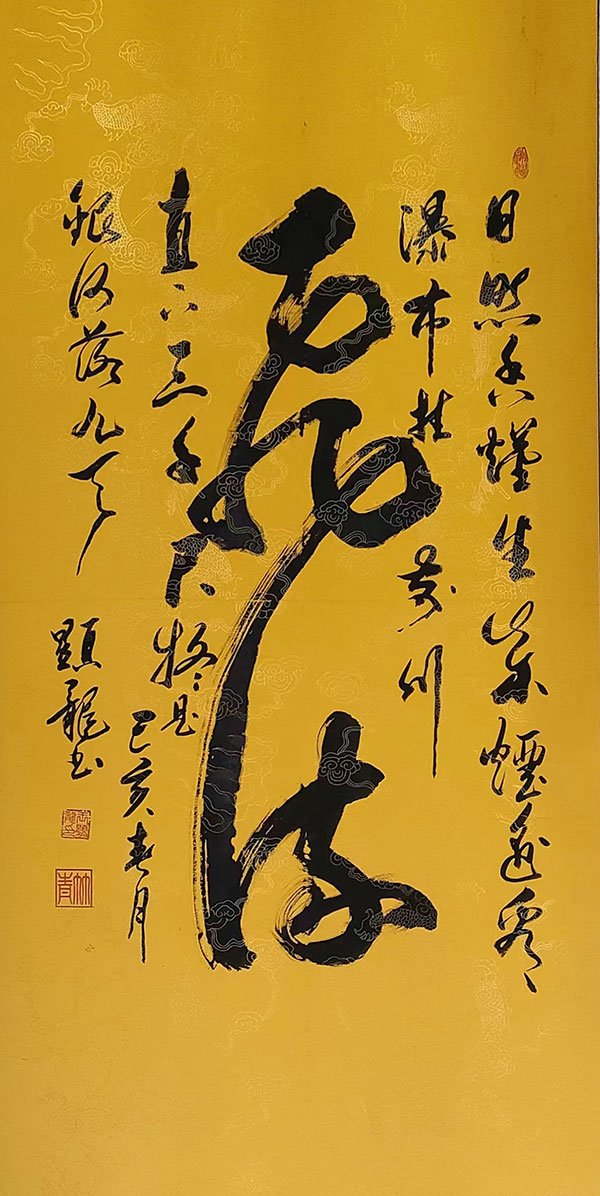 日照香爐生紫煙遙看
瀑布挂前川
飛流
直下三千尺疑是
銀河落九天
己亥春月
顯龍書